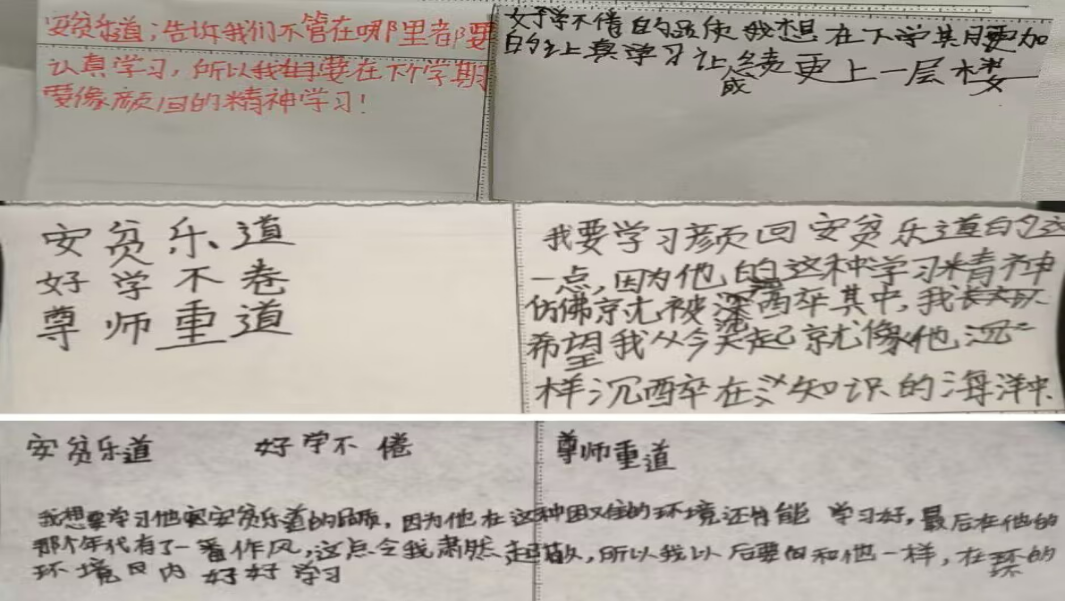 安贫乐道；告诉我们不管在哪里都要
认真学习，所以我要在下个学期
要像颜回的精神学习！
好学不倦的品质我想在下学期更加
的认真学习让成绩更上一层楼
安贫乐道
好学不卷
尊师重道
我要学习颜回安贫乐道的这
一点，因为他的这种学习精神
仿佛就被沉醉其中，我
希望我从今天起就像他沉一
样沉醉在知识的海洋中.
安贫乐道 好学不倦 尊师重道
我想要学习他安贫乐道的品质，因为他在这种困难的环境还能学习好，最后在他的
那个年代有了一番作风，这点令我肃然起敬，所以我以后要和他一样，在的
环境内好好学习